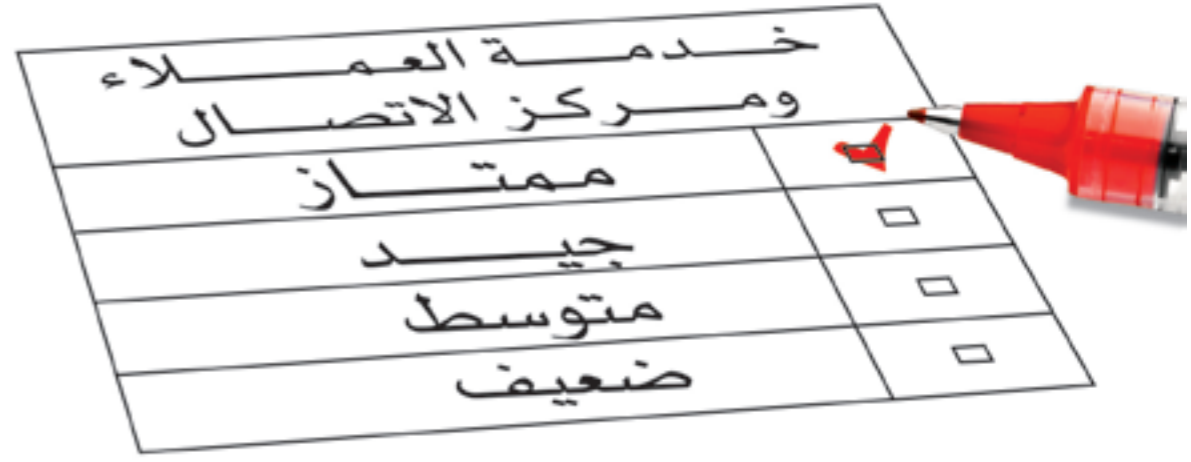 خدمة العملاء
ومركز الاتصال
ممتاز
جيد
متوسط
ضعيف